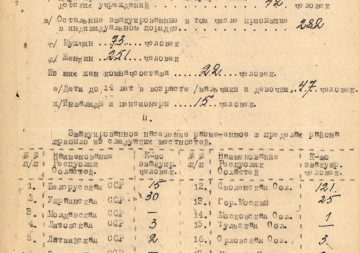 детских учреждений 42 человек
в/ Остальные эвакуированные в том числе прибывшие
в индивидуальном порядке 282
г/ Мужчин 73 человек
д/ Женщин 251 человек
Из них жен комначсостава 22 человек
е/Дети до 14 лет в возрасте /мальчики и девочки/ 47 человек
ж/Инвалиды и пенсионеры 15 человек.
II.
Эвакуированное население размещенное в пределах района
прибыло из следующих местностей.
№№ п/п Наименование Республик Областей. К-во эвакуир. человек. №№ п/п Наименование Республик Областей. К-во эвакуир. человек.
1. Белорусская ССР 15 12. Смоленская Обл. 121
2. Украинская ССР 30 13. Гор. Москва 25
3. Молдавская ССР — 14. Московская Обл. 1
4. Литовская ССР 3 15. Тульская Обл. —
5. Латвийская ССР 2 16. Орловская Обл. 3